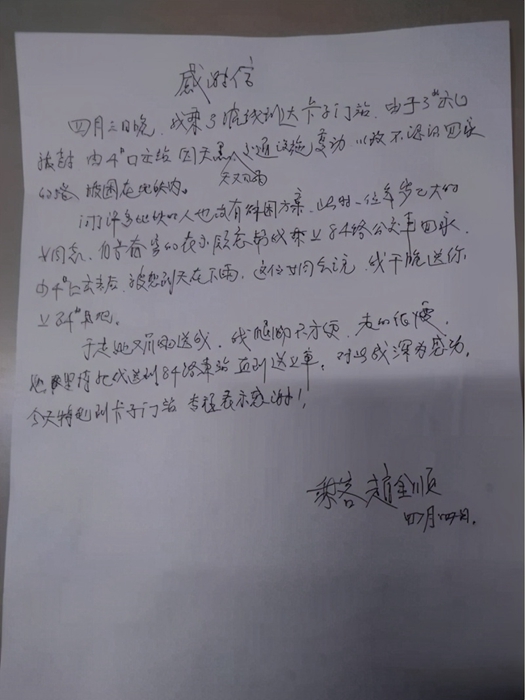 感谢信
四月三日晚，我乘3號线到大卡子门站，由于3#出口
被封，由4#口出站，因天黑人交通设施变动，以致不识得回家
天又雨
的路，被困在地铁内。
问了许多地铁的人也没有解困方案，此时一位年岁已大的
女同志，自告奋勇的表示愿意帮我乘上84路公交车回家，
由4#口出去后，没想到天在下雨，这位女同志说，我干脆送你
上84#车吧。
于是她又冒雨送我，我腿脚不方便，走的很慢，
她把我送到84路车站直到送上车，对此我深为感动，
今天特地到卡子门站专程表示感谢！
乘客 赵金顺
四月四日.